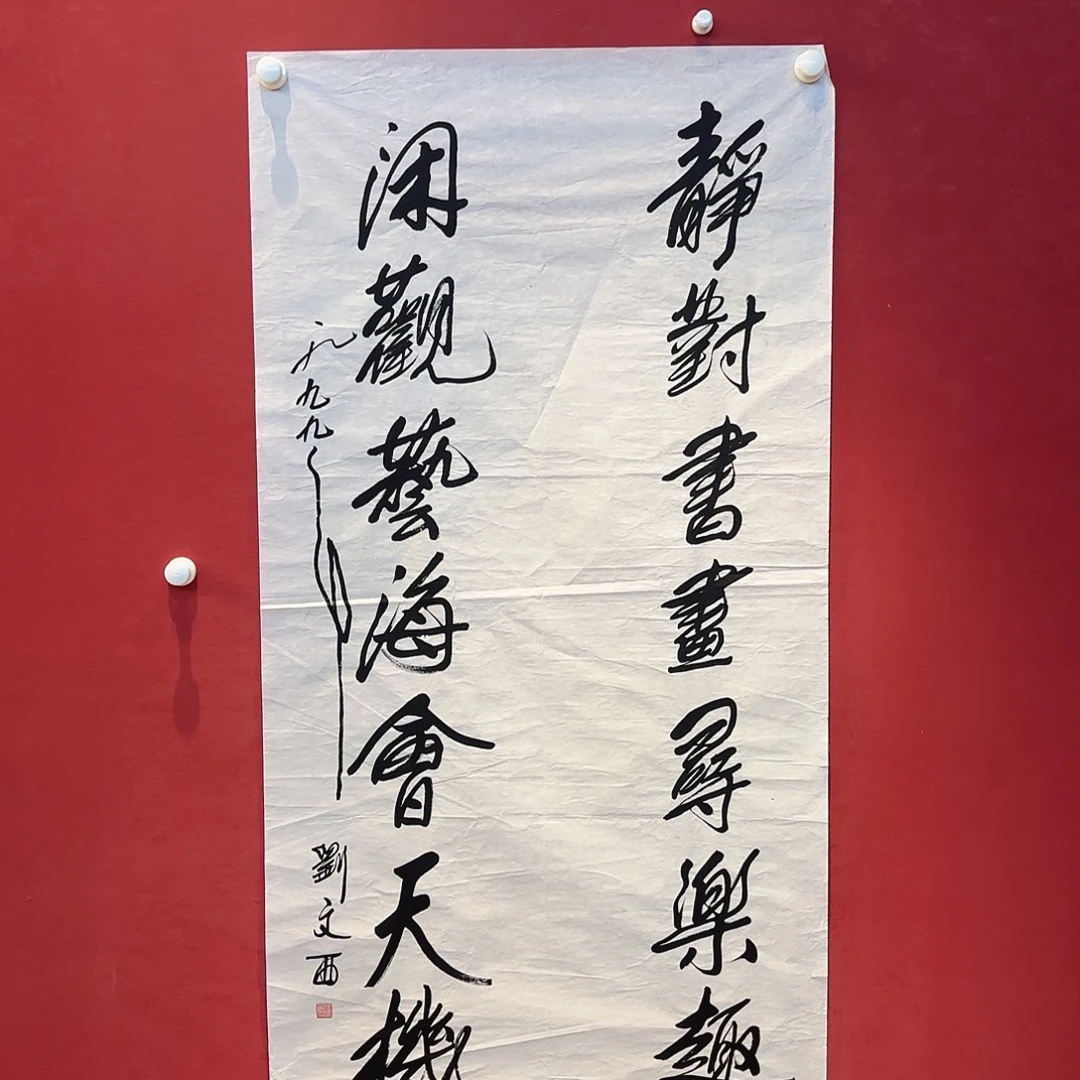 靜對書畫尋樂趣
閑觀藝海會天機
一九九九年
劉文西